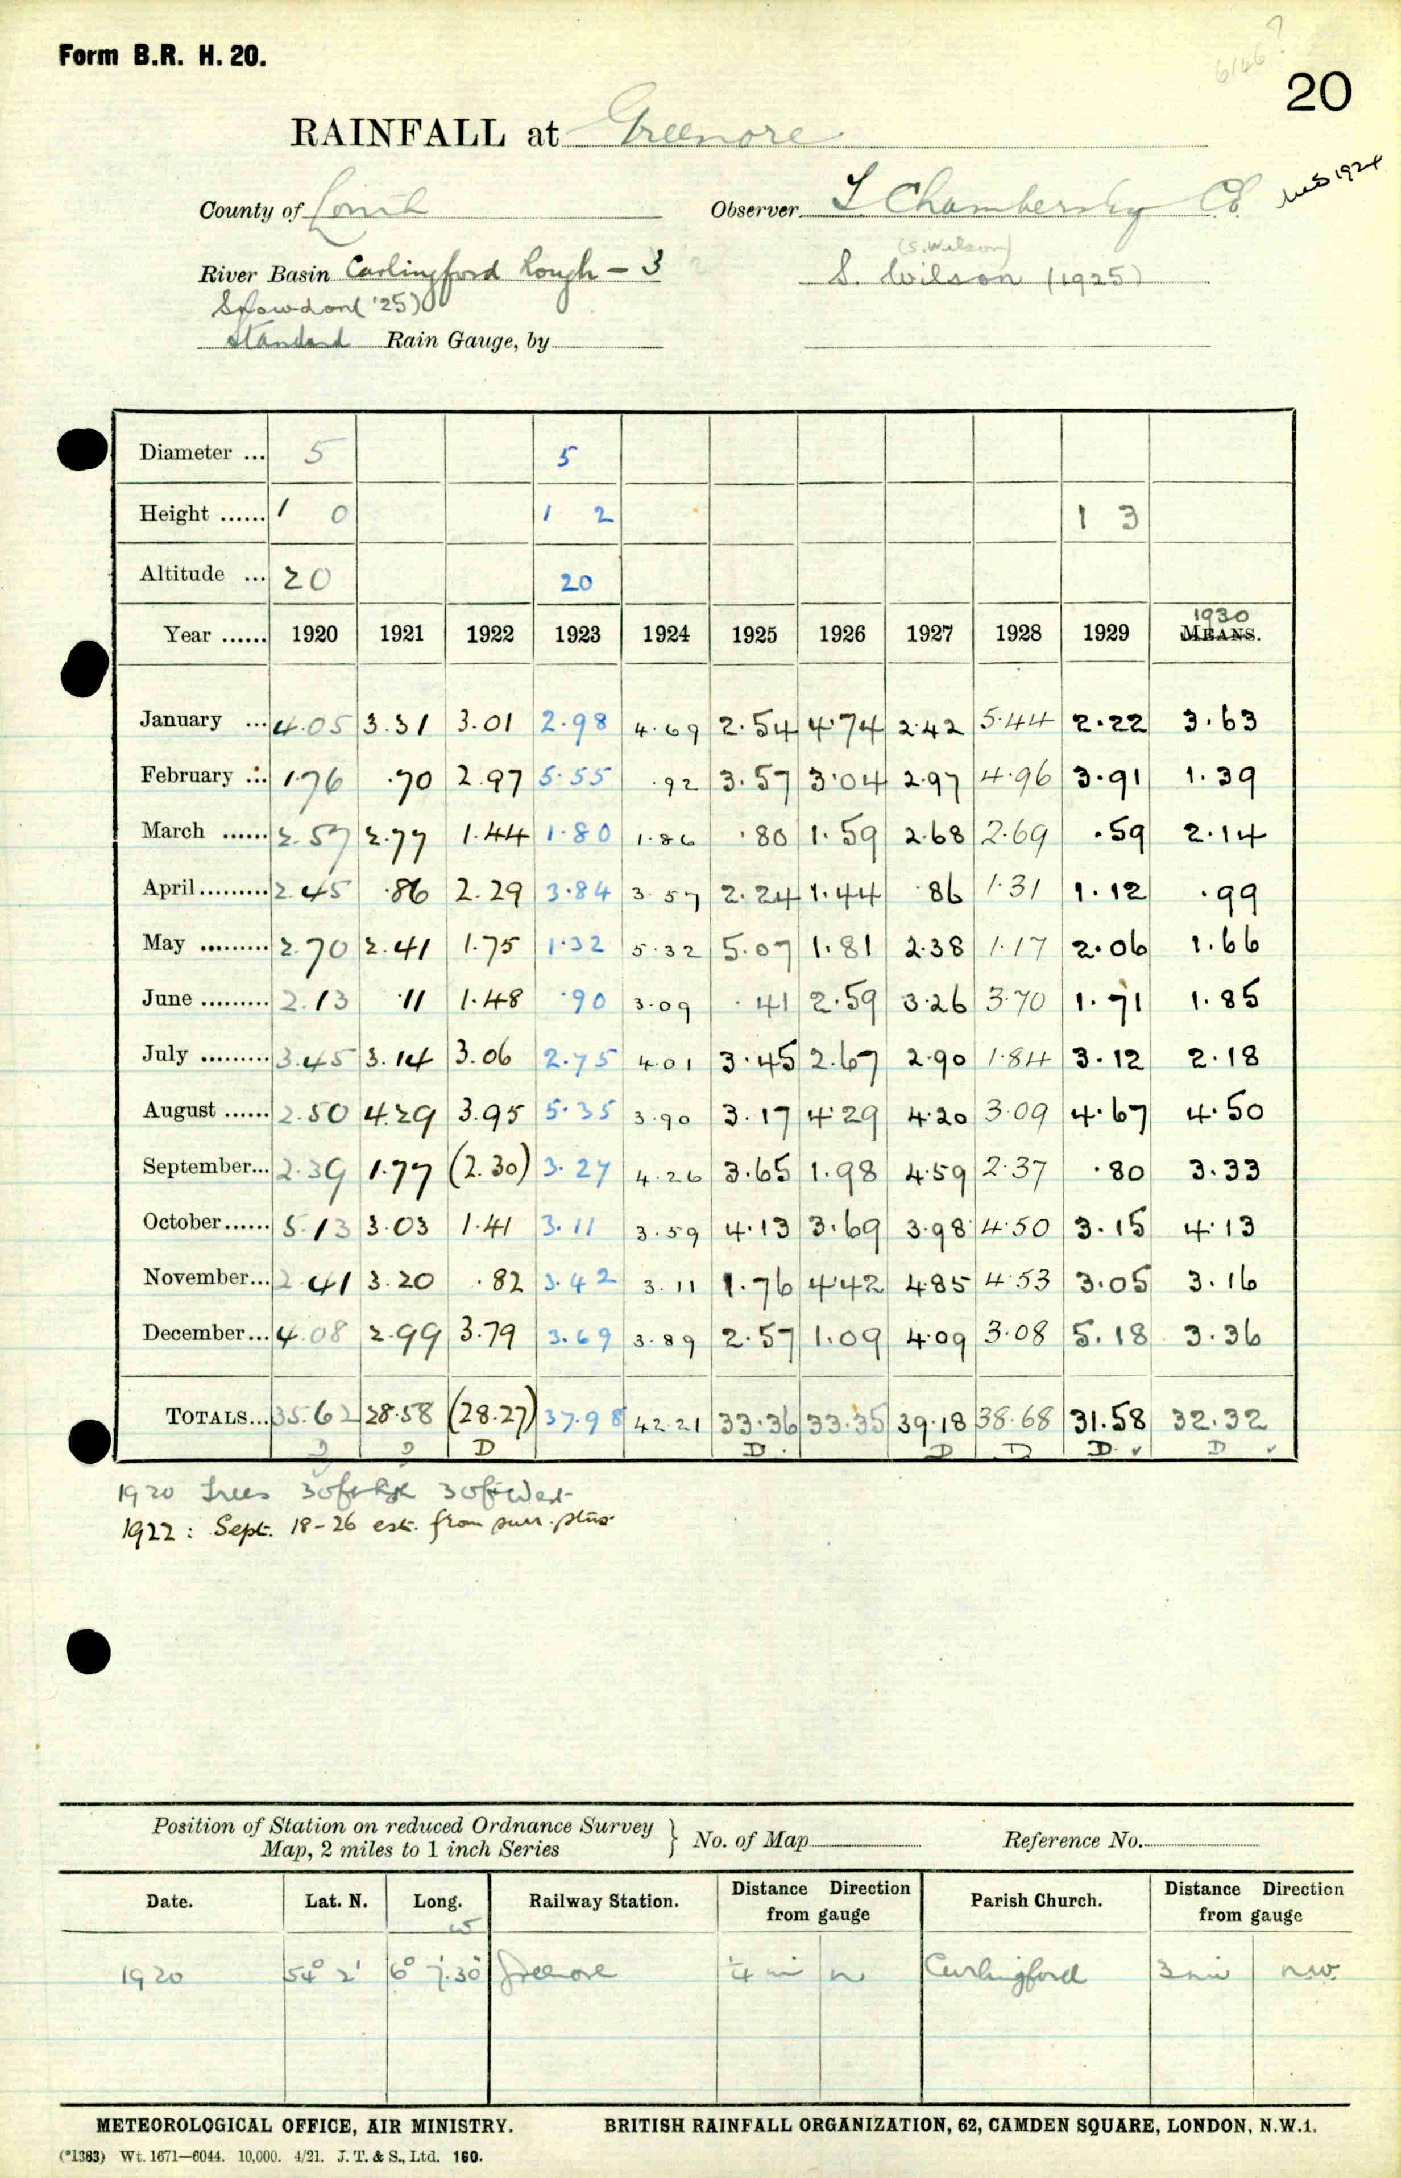 Form B.R. H. 20.
6146?
20
RAINFALL at Greenore
County of Louth Observer T Chambers
1924
(S. Wilson)
River Basin Carlingford Lough - 3 S. Wilson (1925)
Snowdon ('25)
Standard Rain Gauge, by
Diameter ... 5 5
Height ...... 1 0 1 2 1 3
Altitude ... 20 20
1930
Year ...... 1920 1921 1922 1923 1924 1925 1926 1927 1928 1929 MEANS.
January ... 4.05 3.31 3.01 2.98 4.69 2.54 4.74 2.42 5.44 2.22 3.63
February ... 1.76 .70 2.97 5.55 .92 3.57 3.04 2.97 4.96 3.91 1.39
March ...... 2.57 2.77 1.44 1.80 1.86 .80 1.59 2.68 2.69 .59 2.14
April ......... 2.45 .86 2.29 3.84 3.57 2.24 1.44 .86 1.31 1.12 .99
May ......... 2.70 2.41 1.75 1.32 5.32 5.07 1.81 2.38 1.17 2.06 1.66
June ......... 2.13 .11 1.48 .90 3.09 .41 2.59 3.26 3.70 1.71 1.85
July ......... 3.45 3.14 3.06 2.75 4.01 3.45 2.67 2.90 1.84 3.12 2.18
August ...... 2.50 4.29 3.95 5.35 3.90 3.17 4.29 4.20 3.09 4.67 4.50
September... 2.39 1.77 (2.30) 3.27 4.26 3.65 1.98 4.59 2.37 .80 3.33
October...... 5.13 3.03 1.41 3.11 3.59 4.13 3.69 3.98 4.50 3.15 4.13
November... 2.41 3.20 .82 3.42 3.11 1.76 4.42 4.85 4.53 3.05 3.16
December... 4.08 2.99 3.79 3.69 3.89 2.57 1.09 4.09 3.08 5.18 3.36
TOTALS... 35.62 28.58 (28.27) 37.98 42.21 33.36 33.35 39.18 38.68 31.58 32.32
D D D D D D D ✓ D ✓
1920 Trees 30ft 30ft West
1922: Sept. 18-26 est. from surr. stns.
Position of Station on reduced Ordnance Survey
Map, 2 miles to 1 inch Series } No. of Map Reference No.
Date. Lat. N. Long. Railway Station. Distance Direction from gauge Parish Church. Distance Direction from gauge
W
1920 54° 2' 6° 7'.30" Greenore ¼ mi n Carlingford 3 mi n.w.
METEOROLOGICAL OFFICE, AIR MINISTRY. BRITISH RAINFALL ORGANIZATION, 62, CAMDEN SQUARE, LONDON, N.W.1.
(*1383) Wt. 1671—6044. 10,000. 4/21. J. T. & S., Ltd. 160.